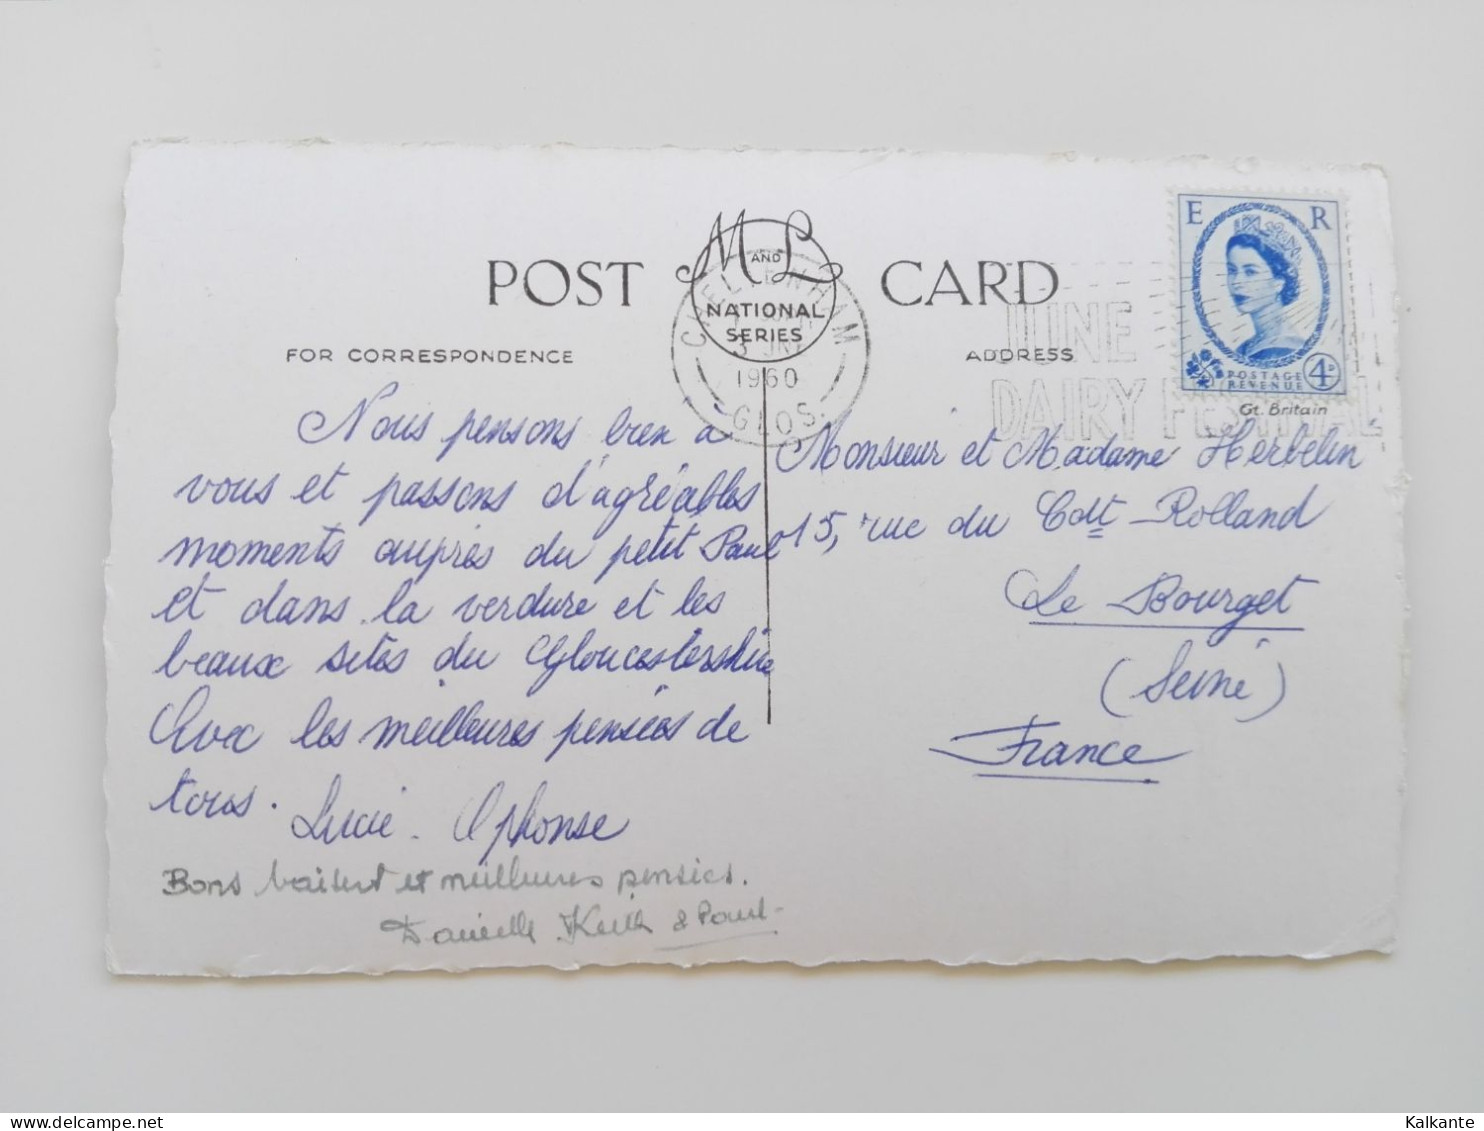 POST CARD
M AND L
NATIONAL
SERIES
FOR CORRESPONDENCE
ADDRESS
CHELTENHAM
1960
GLOS.
JUNE
DAIRY FESTIVAL
E R
POSTAGE
REVENUE
4D
Gt. Britain
Nous pensons bien à
vous et passons d'agréables
moments auprès du petit Paul
et dans la verdure et les
beaux sites du Gloucestershire
Avec les meilleures pensées de
tous.
Lucie. Alphonse
Bons baisers et meilleures pensées.
Danielle Keith & Paul
Monsieur et Madame Herbelin
15, rue du Cdt Rolland
Le Bourget
(Seine)
France
Kalkante